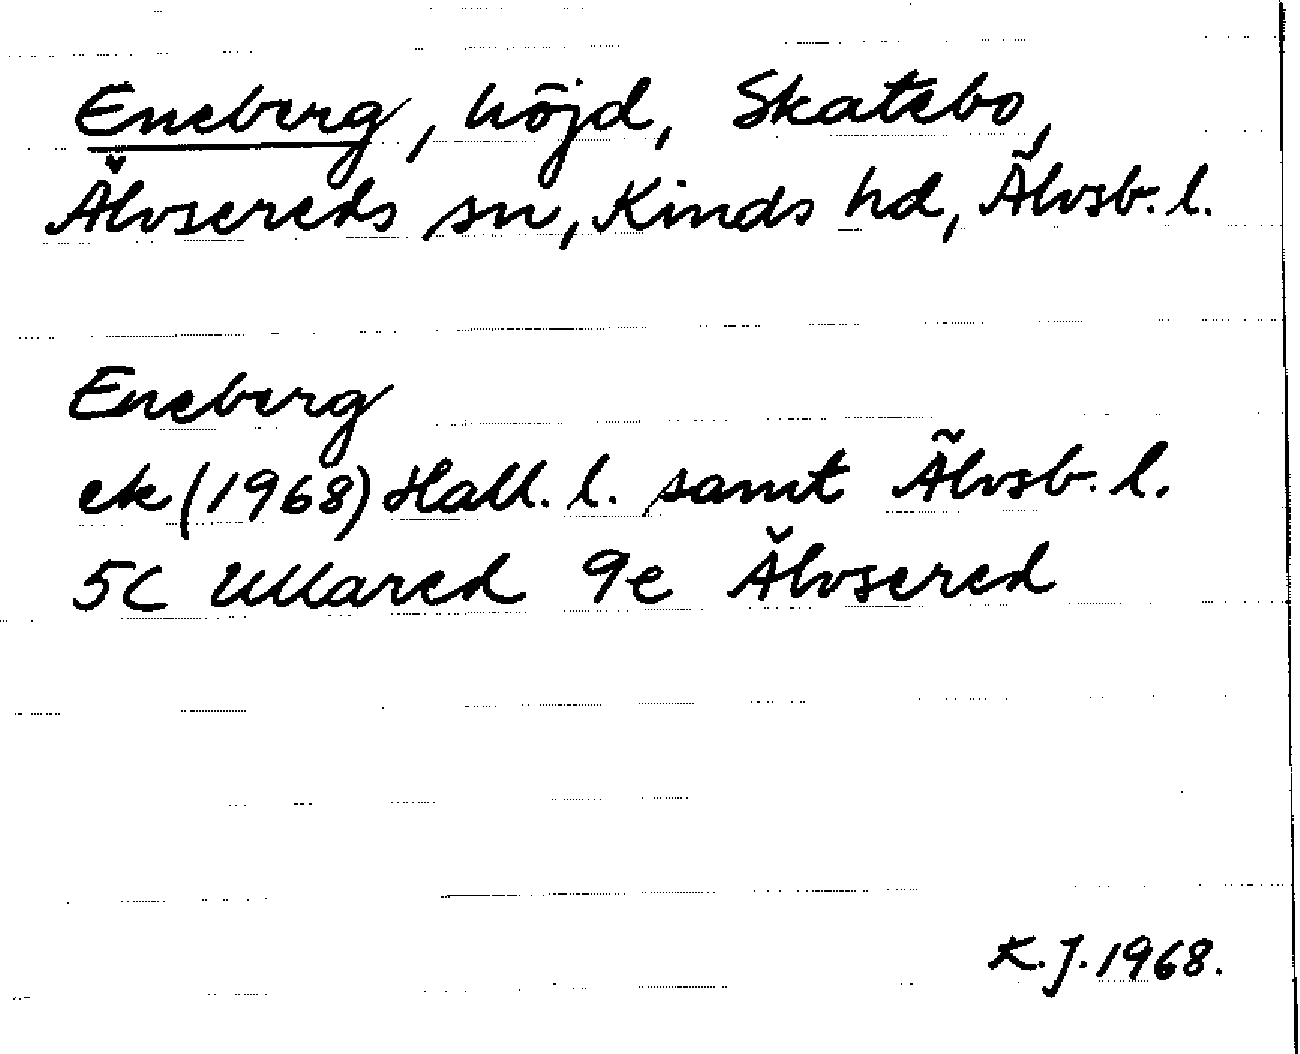 Eneberg, höjd, Skatebo,
Älvsereds sn, Kinds hd, Älvsb. l.
Eneberg
ek (1968) Hall. l. samt Älvsb. l.
5C Ullared 9e Älvsered
K.J. 1968.